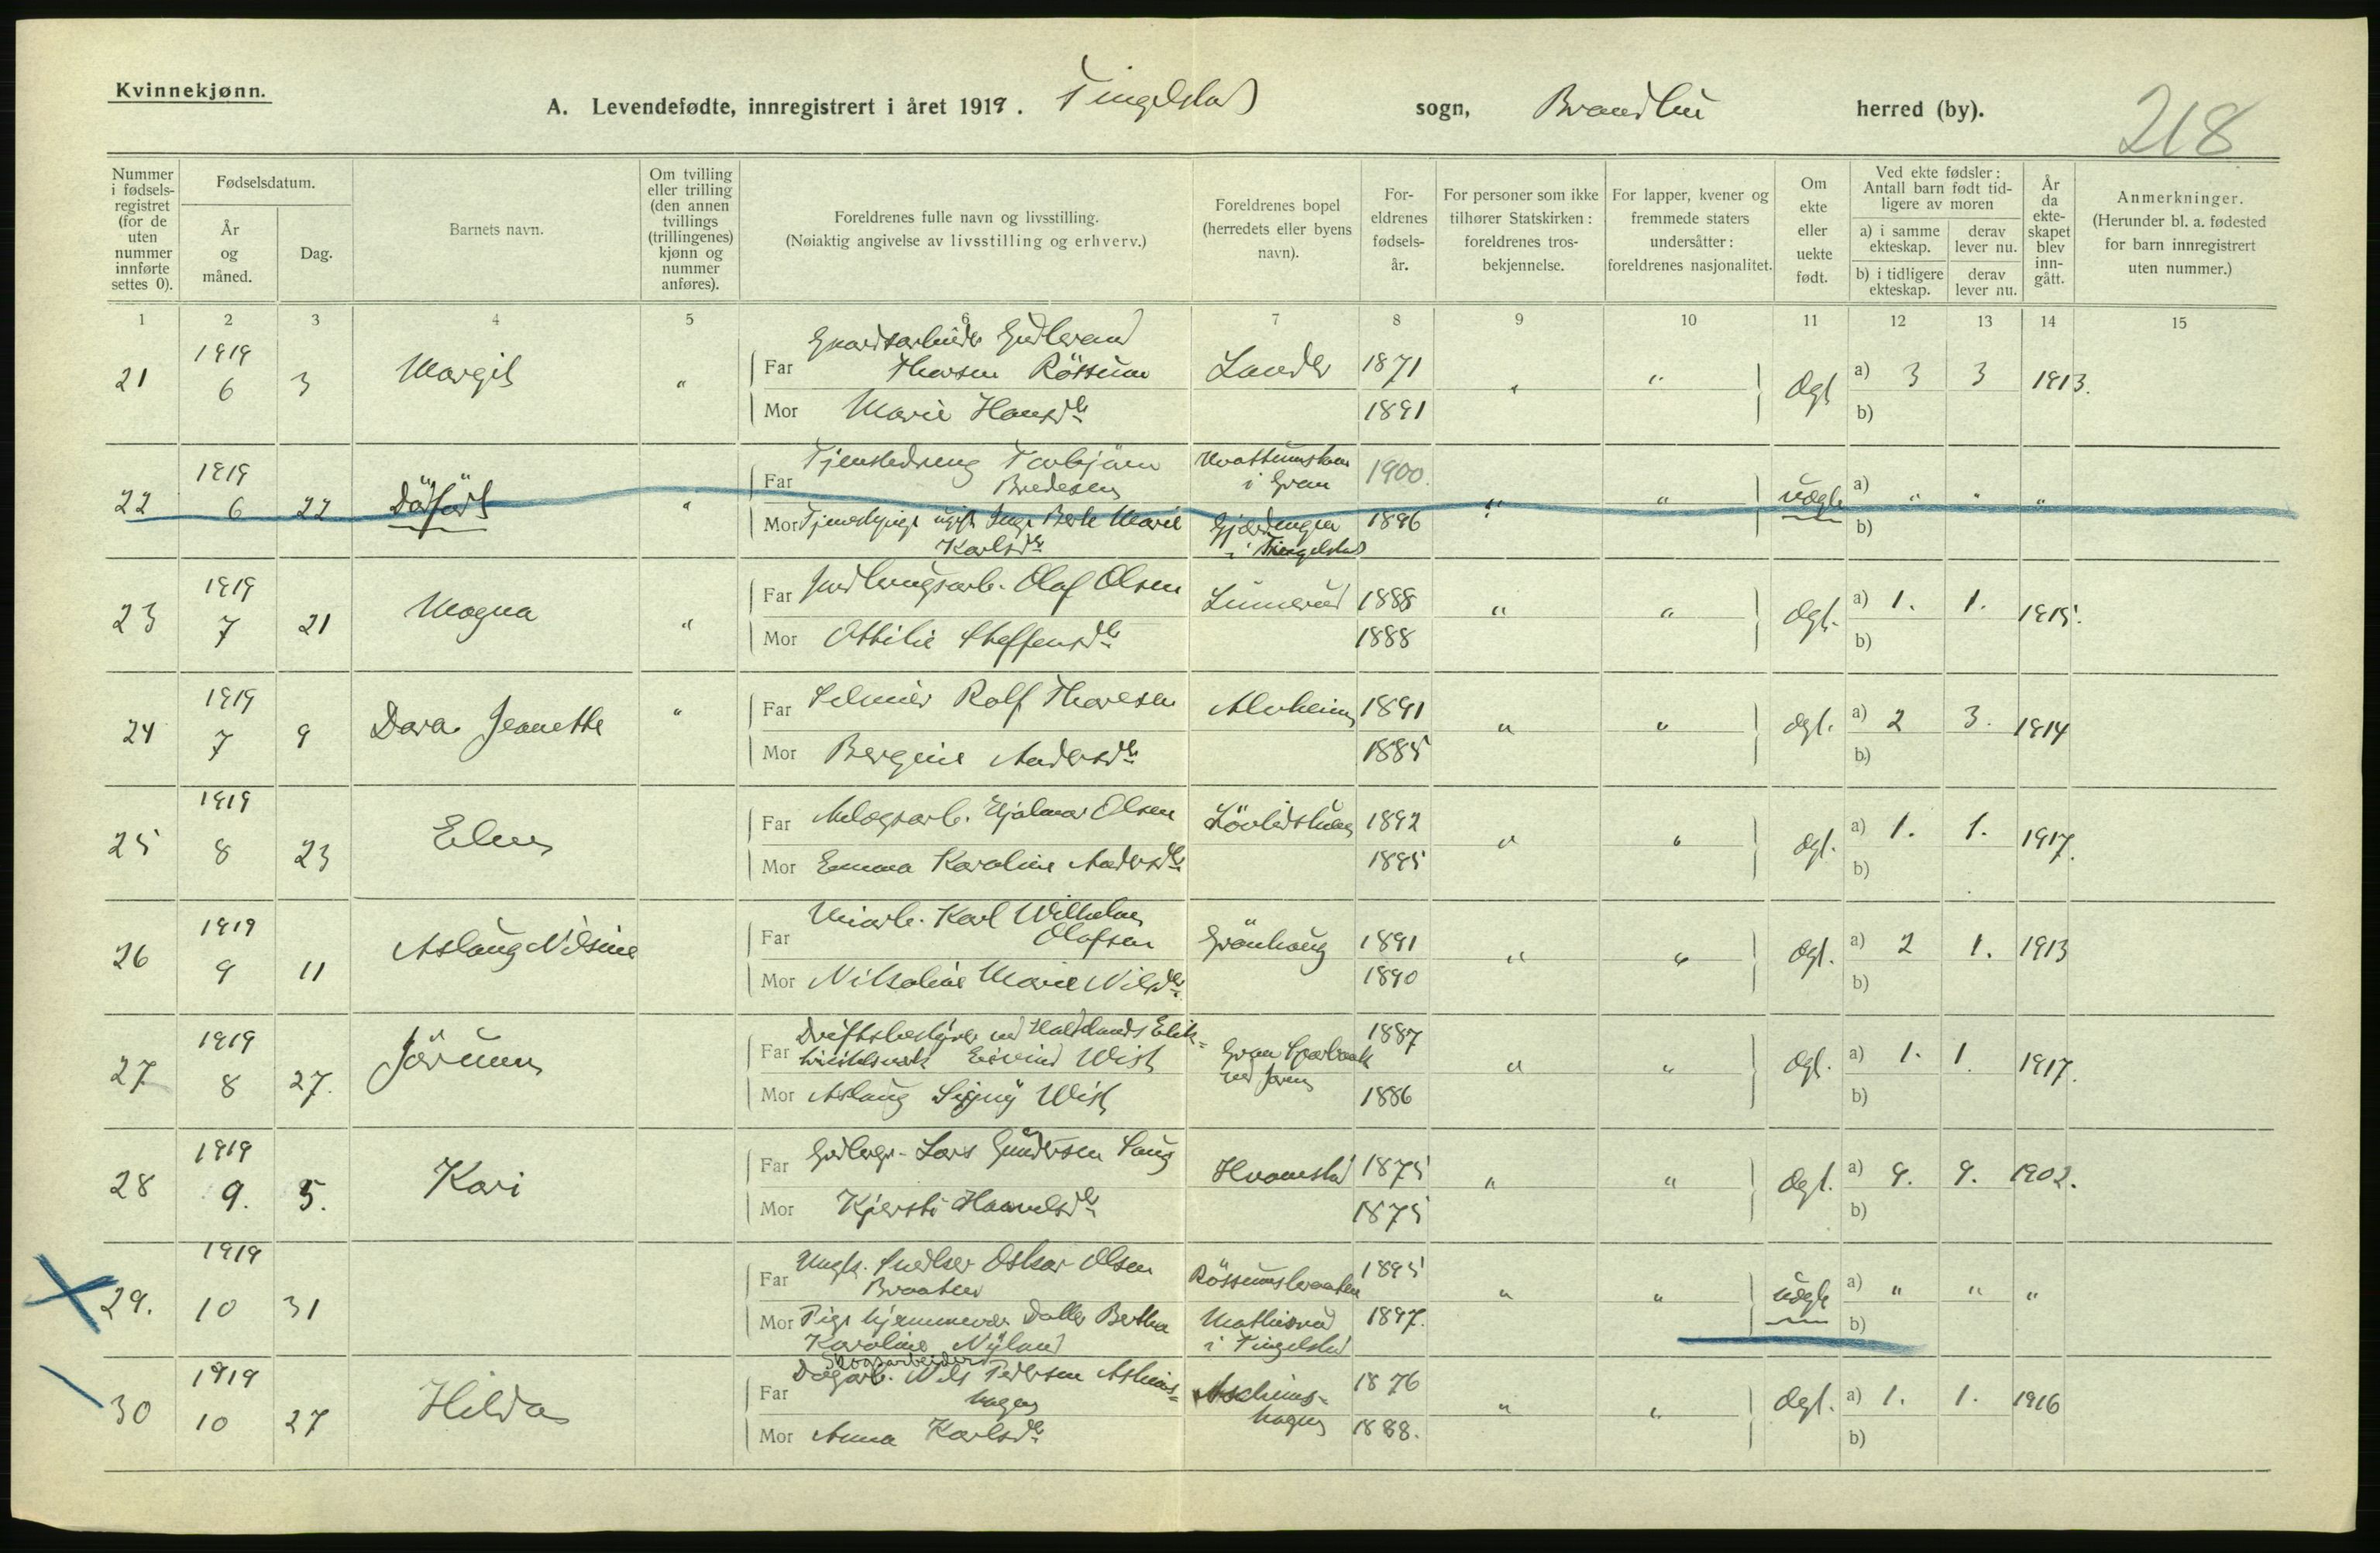 Kvinnekjønn.
A. Levendefødte, innregistrert i året 1919. Tingelstad sogn, Brandbu herred (by).
218
Nummer i fødselsregistret (for de uten nummer innførte settes 0).
Fødselsdatum.
År og måned.
Dag.
Barnets navn.
Om tvilling eller trilling (den annen tvillings (trillingenes) kjønn og nummer anføres).
Foreldrenes fulle navn og livsstilling.
(Nøiaktig angivelse av livsstilling og erhverv.)
Foreldrenes bopel (herredets eller byens navn).
Foreldrenes fødselsår.
For personer som ikke tilhører Statskirken: foreldrenes trosbekjennelse.
For lapper, kvener og fremmede staters undersåtter: foreldrenes nasjonalitet.
Om ekte eller uekte født.
Ved ekte fødsler: Antall barn født tidligere av moren
a) i samme ekteskap.
derav lever nu.
b) i tidligere ekteskap.
derav lever nu.
År da ekteskapet blev inngått.
Anmerkninger.
(Herunder bl. a. fødested for barn innregistrert uten nummer.)
1 2 3 4 5 6 7 8 9 10 11 12 13 14 15
21 1919 6 3 Margit " Far Gaardsarbeider Gudbrand
Thorsen Røssum 1871 " " Ægt a) 3 3 1913.
Mor Marie Hansdtr 1891 b)
22 1919 6 22 Dödfödt " Far Tjenstedreng Torbjörn
Bredesen i Gran 1900. " " uægte a) " " "
Mor ugift Berte Marie
Karlsdtr i Tingelstad 1896 b)
23 1919 7 21 Magna " Far Olaf Olsen Lunnerud 1888 " " Ægt. a) 1. 1. 1915.
Mor Othilie Steffensdtr 1888 b)
24 1919 7 9 Dara Jeanette " Far Rolf Thoresen Alvheim 1891 " " Ægt. a) 2 3. 1914
Mor Bergine Andersdtr 1885 b)
25 1919 8 23 Far Anlægsarb. Hjalmar Olsen 1892 " " Ægt. a) 1. 1. 1917.
Mor Emma Karoline Andersdtr 1895 b)
26 1919 9 11 Aslaug Nilsine Far Karl Wilhelm
Olafsen Grönhaug 1891 " " Ægt. a) 2 1. 1913
Mor Nikoline Marie Nilsdtr 1890 b)
27 1919 8 27. Jörunn Far Driftsbestyrer ved Hadelands Elek-
Eivind Wist Gran Sparebank
ved Jaren 1887 " " Ægt. a) 1. 1 1917.
Mor Aslaug Signy Wist 1886 b)
28 1919 9. 5. Kari Far Lars Gundersen 1875 " " Ægt. a) 9. 9. 1902.
Mor Kjersti Haavelsdtr 1875 b)
29. 1919 10 31 Far Ungk. Snedker Oskar Olsen
Braaten Røssumsbraaten 1895 " " uægte a) " " "
Mor Pige hjemmevær. Datter Bertha
Karoline Nyland i Tingelstad 1897. b)
30 1919 10 27 Hilda Far Skogsarbeider
Dagarb. Nils Pedersen Askeims-
hagen Askeims-
hagen 1876 " " Ægt. a) 1. 1. 1916
Mor Anna Karlsdtr 1888. b)